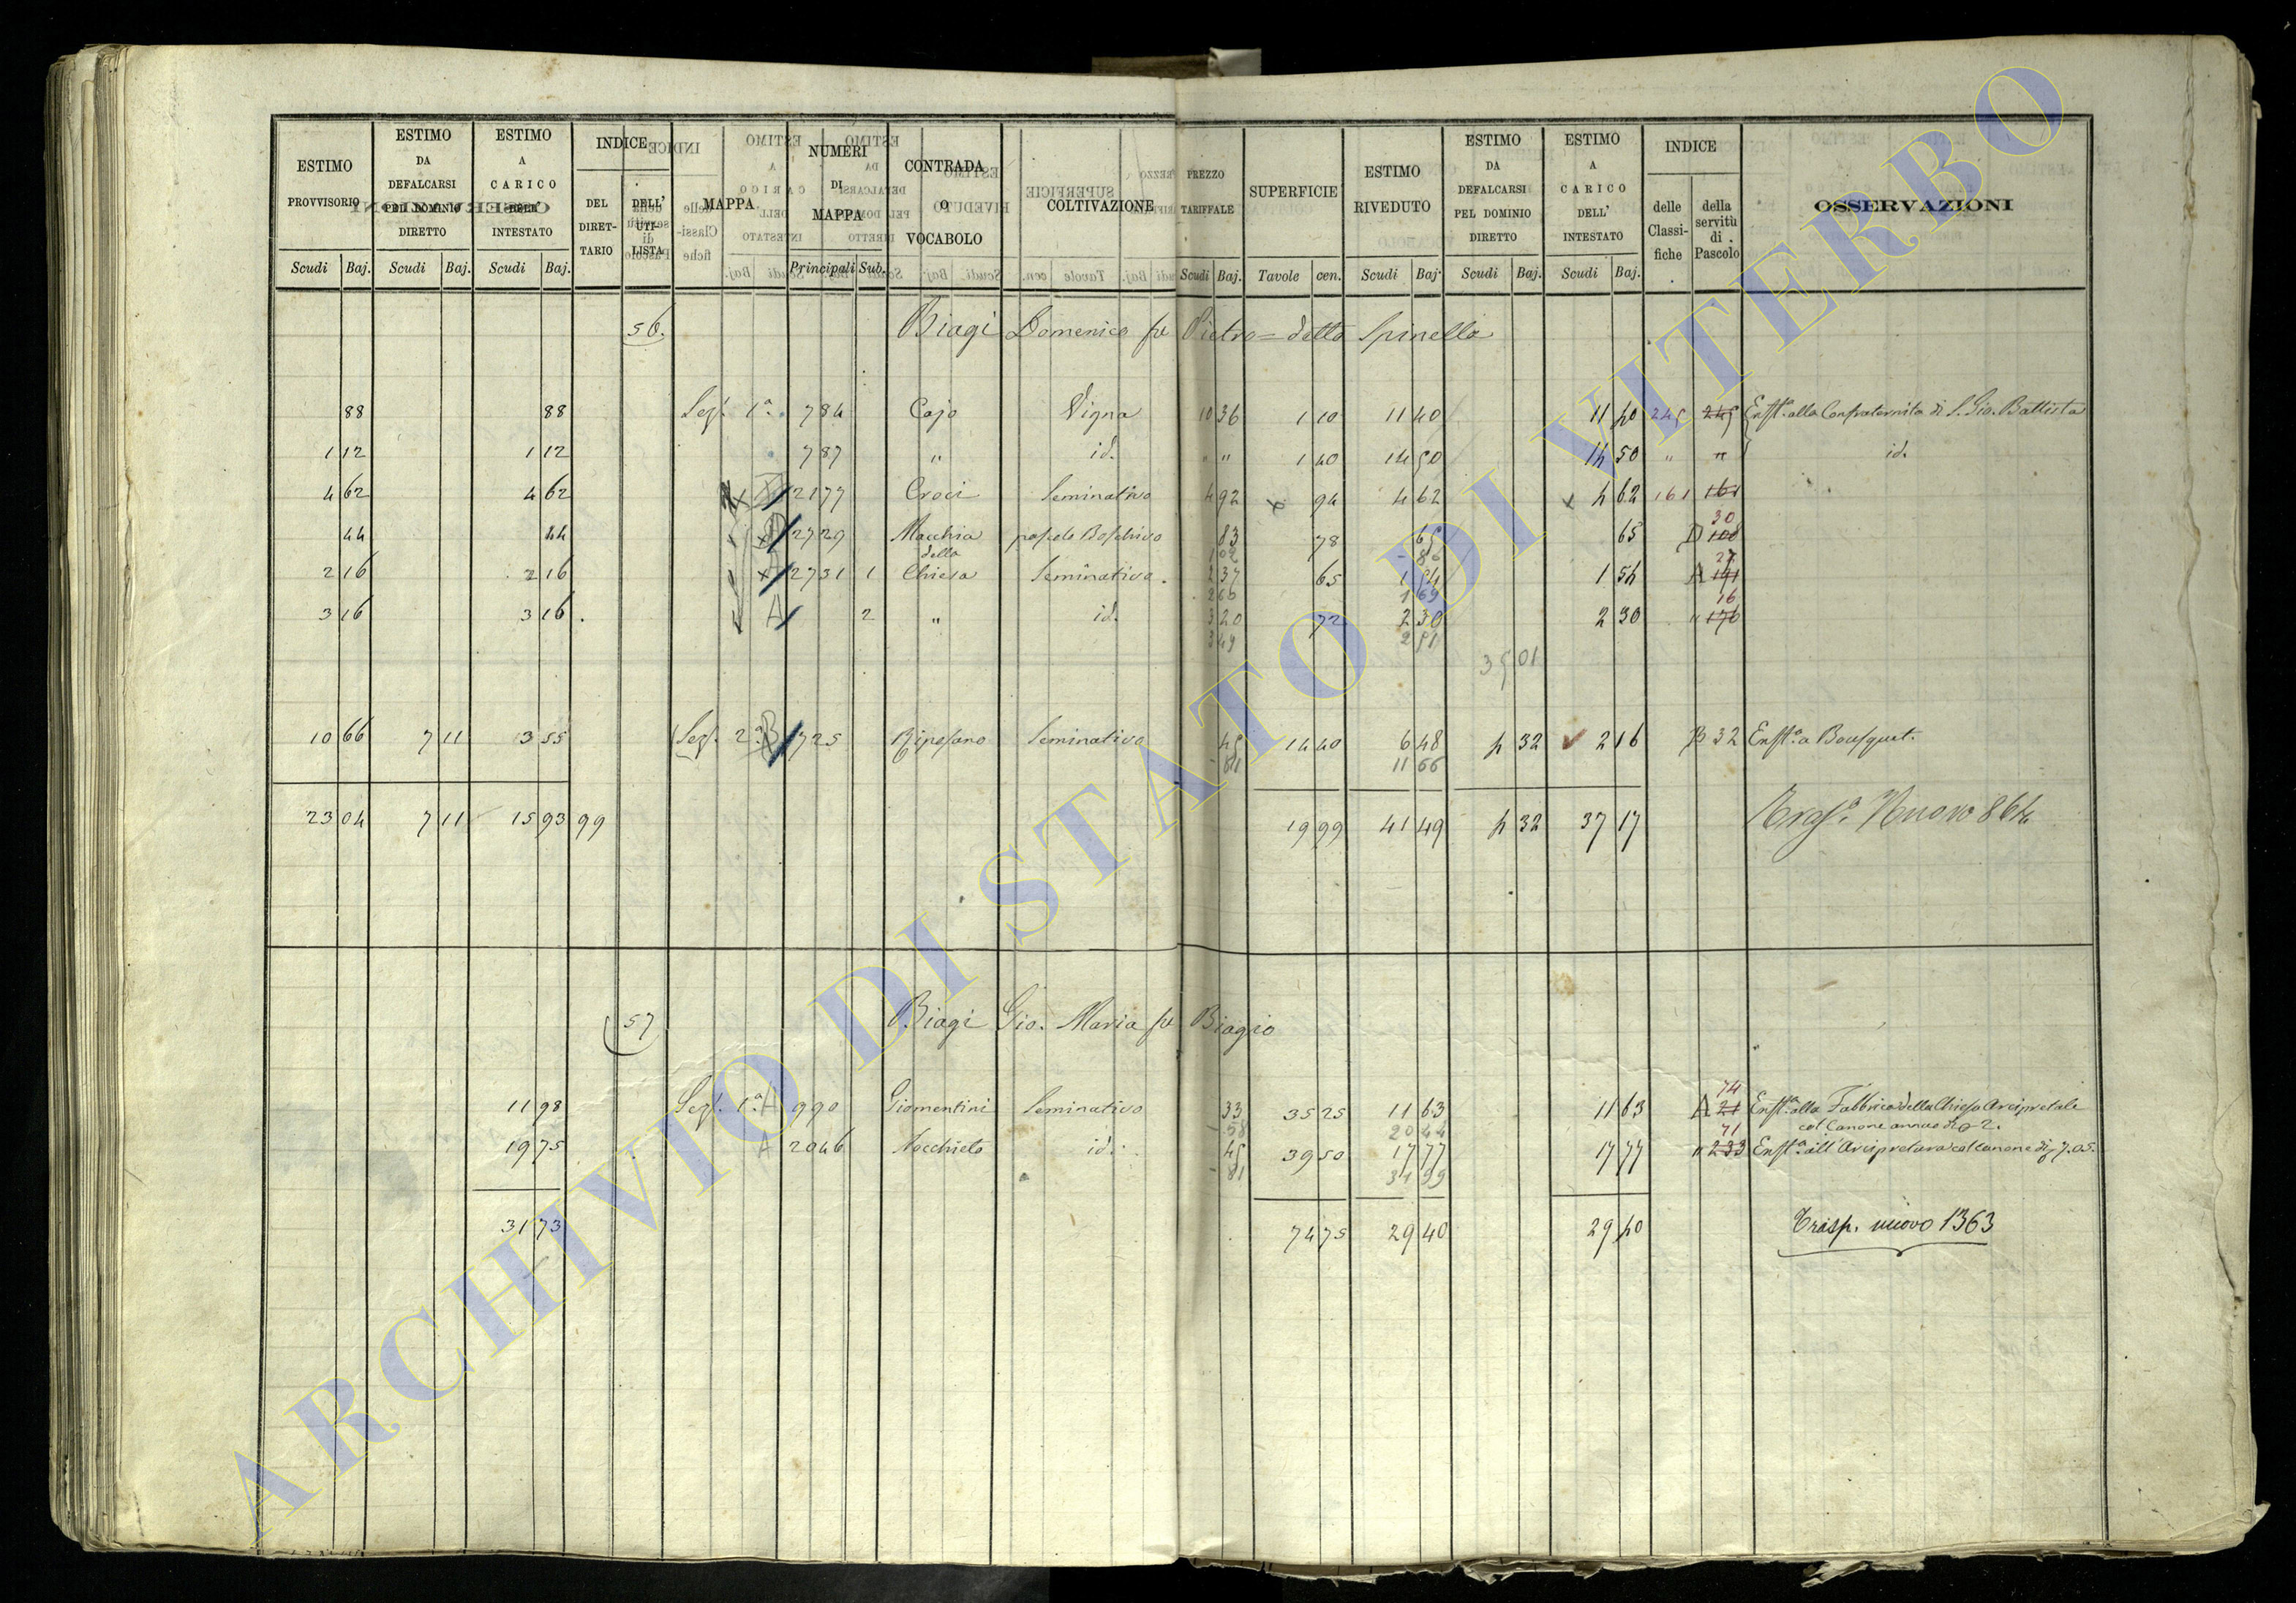 ESTIMO PROVVISORIO Scudi Baj.
ESTIMO DA DEFALCARSI PEL DOMINIO DIRETTO Scudi Baj.
ESTIMO A CARICO DELL' INTESTATO Scudi Baj.
INDICE DEL DIRETTARIO DELL' UTILISTA
MAPPA
NUMERI DI MAPPA Principali Sub.
CONTRADA O VOCABOLO
COLTIVAZIONE
PREZZO TARIFFALE Scudi Baj.
SUPERFICIE Tavole cen.
ESTIMO RIVEDUTO Scudi Baj.
ESTIMO DA DEFALCARSI PEL DOMINIO DIRETTO Scudi Baj.
ESTIMO A CARICO DELL' INTESTATO Scudi Baj.
INDICE delle Classifiche della servitù di Pascolo
OSSERVAZIONI
56. Biagi Domenico fu Pietro = detto Spinella
88 88 Sez. 1ª 784 Cajo Vigna 10 36 1 10 11 40 11 40 245 245 Enfta alla Confraternita di S. Gio. Battista
1 12 1 12 787 " id. " " 1 40 14 50 14 50 " " id.
4 62 4 62 2177 Croci Seminativo 4 92 94 4 62 4 62 161 161
44 44 2729 Macchia pascolo Boschivo 83 78 65 65 D 108 30
della 1 02 86
2 16 2 16 2731 1 Chiesa Seminativo 2 37 65 1 54 1 54 A 27
2 66 1 69
3 16 3 16 A 2 " id. 3 20 72 2 30 2 30 " 176 16
3 49 2 51
35 01
10 66 7 11 3 55 Sez. 2ª B 725 Ripesano Seminativo 45 14 40 6 48 4 32 2 16 B 32 Enfta a Bousquet.
81 11 66
23 04 7 11 15 93 99 19 99 41 49 4 32 37 17 Nuovo 864
57 Biagi Gio. Maria fu Biagio
11 98 Sez. 1ª A 990 Giomentini Seminativo 33 35 25 11 63 11 63 A 21 74 Enfta alla Fabbrica della Chiesa Arcipretale
58 20 44 col Canone annuo di 2.
19 75 A 2046 Nocchieto id. 45 39 50 17 77 17 77 " 233 71 Enfta all'Arcipretura col canone di 7.05.
81 31 99
31 73 74 75 29 40 29 40 Trasp. nuovo 1363
ARCHIVIO DI STATO DI VITERBO